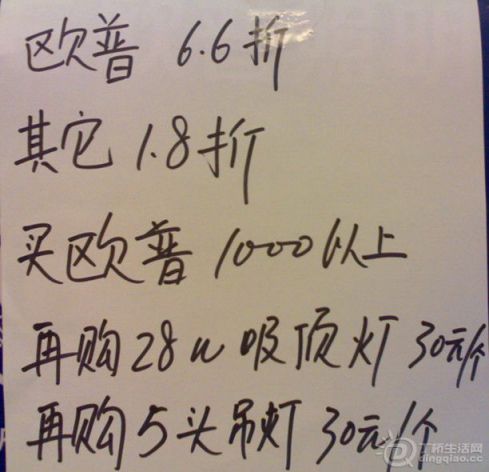 欧普 6.6折
其它 1.8折
买欧普 1000以上
再购28w吸顶灯 30元/个
再购5头吊灯 30元/个
丁桥生活网
dingqiao.cc